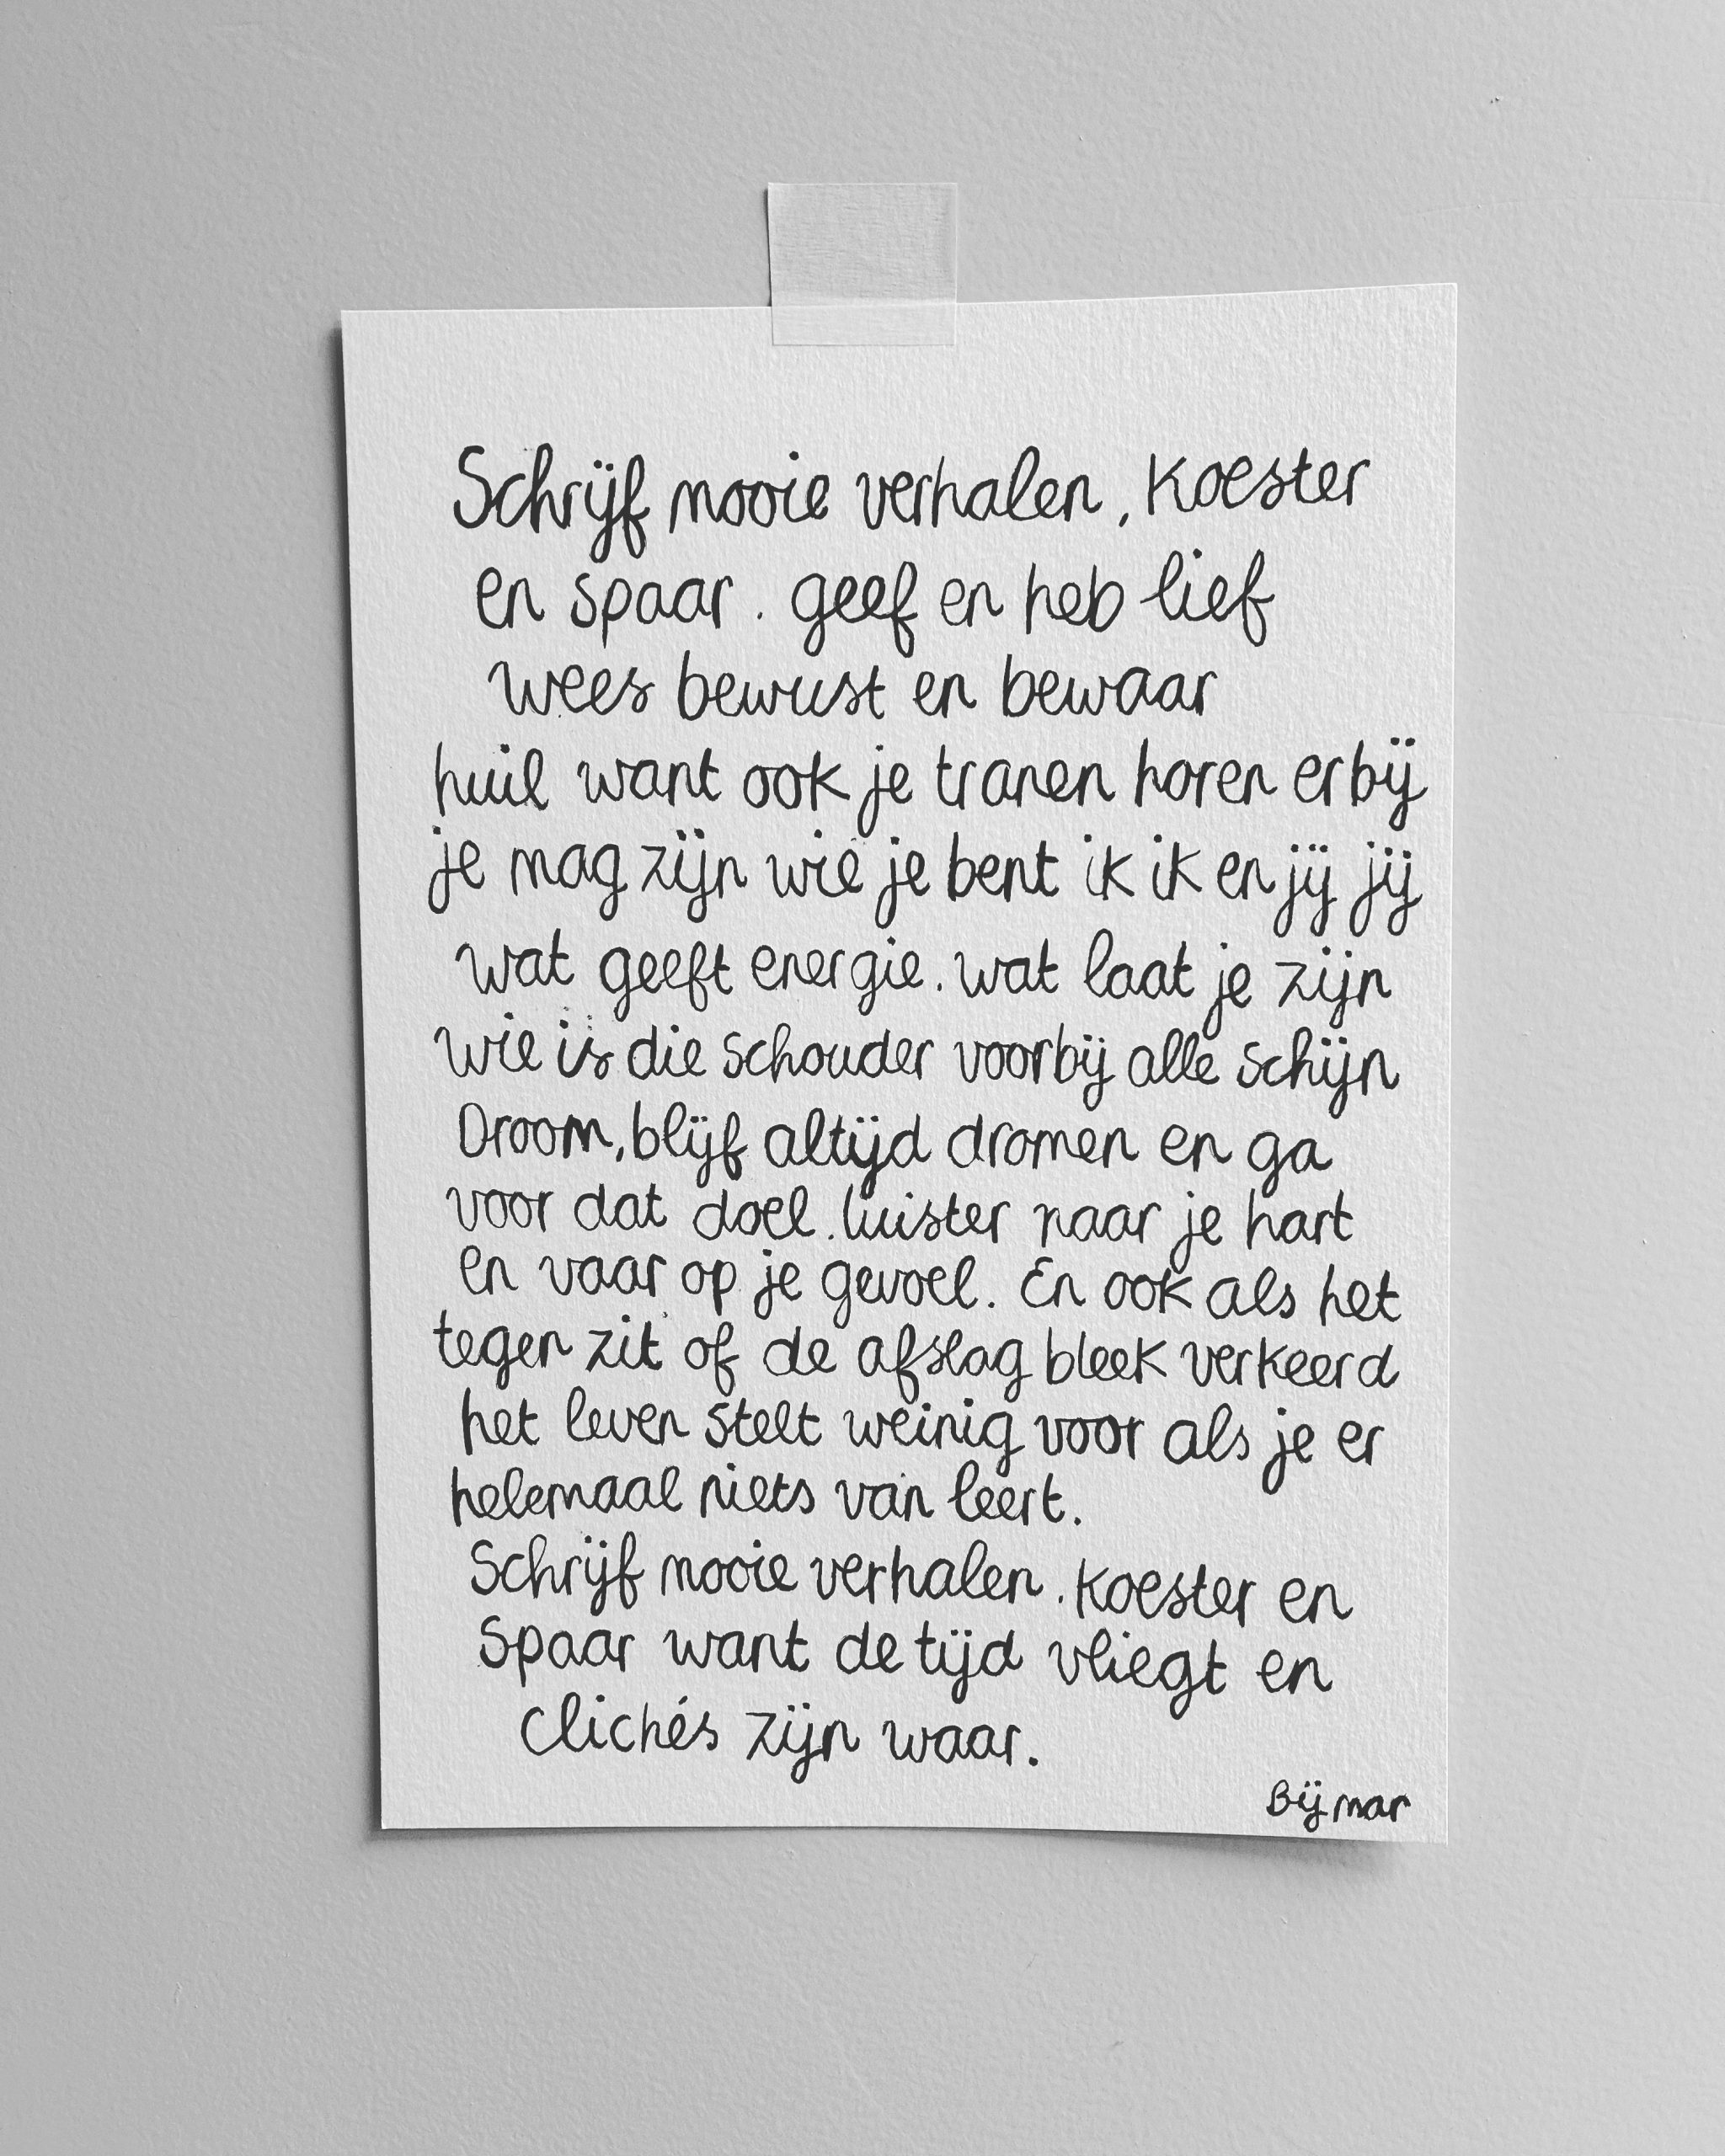 Schrijf mooie verhalen, koester
en spaar. geef en heb lief
wees bewust en bewaar
huil want ook je tranen horen erbij
je mag zijn wie je bent ik ik en jij jij
wat geeft energie. wat laat je zijn
wie is die schouder voorbij alle schijn
Droom, blijf altijd dromen en ga
voor dat doel. luister naar je hart
en vaar op je gevoel. En ook als het
tegen zit of de afslag bleek verkeerd
het leven stelt weinig voor als je er
helemaal niets van leert.
Schrijf mooie verhalen. koester en
spaar want de tijd vliegt en
clichés zijn waar.
Bij mar